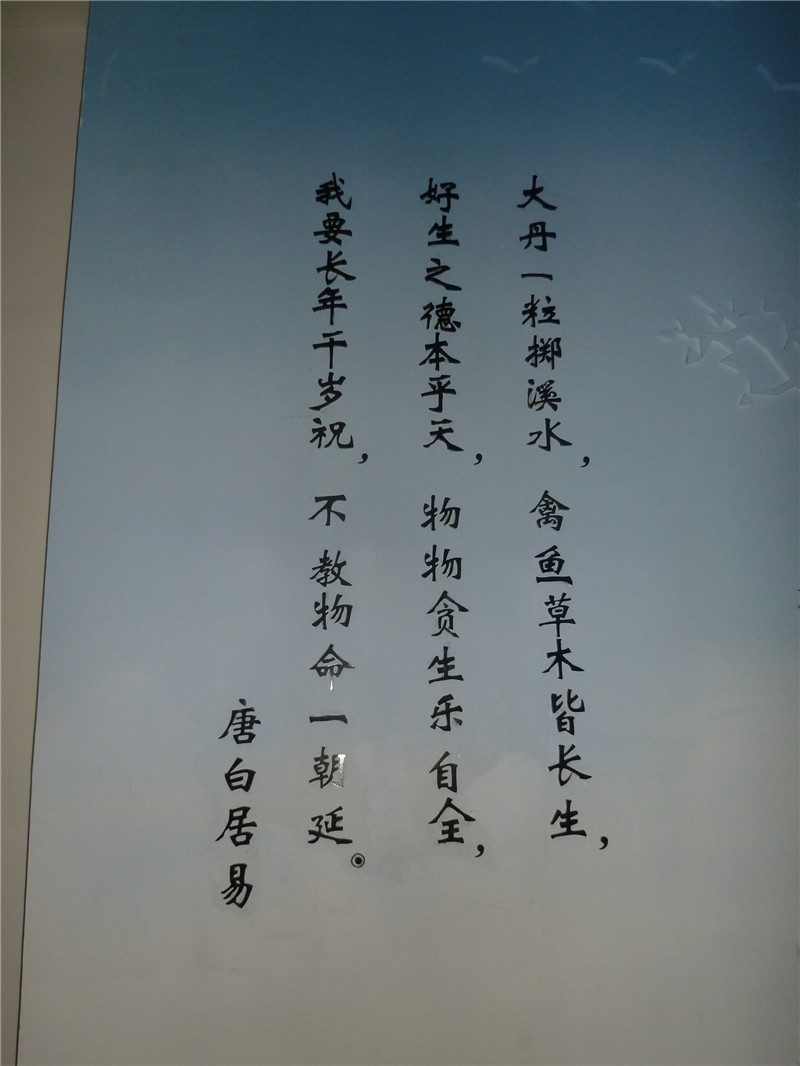 大丹一粒掷溪水，禽鱼草木皆长生，
好生之德本乎天，物物贪生乐自全，
我要长年千岁祝，不教物命一朝延。
唐白居易